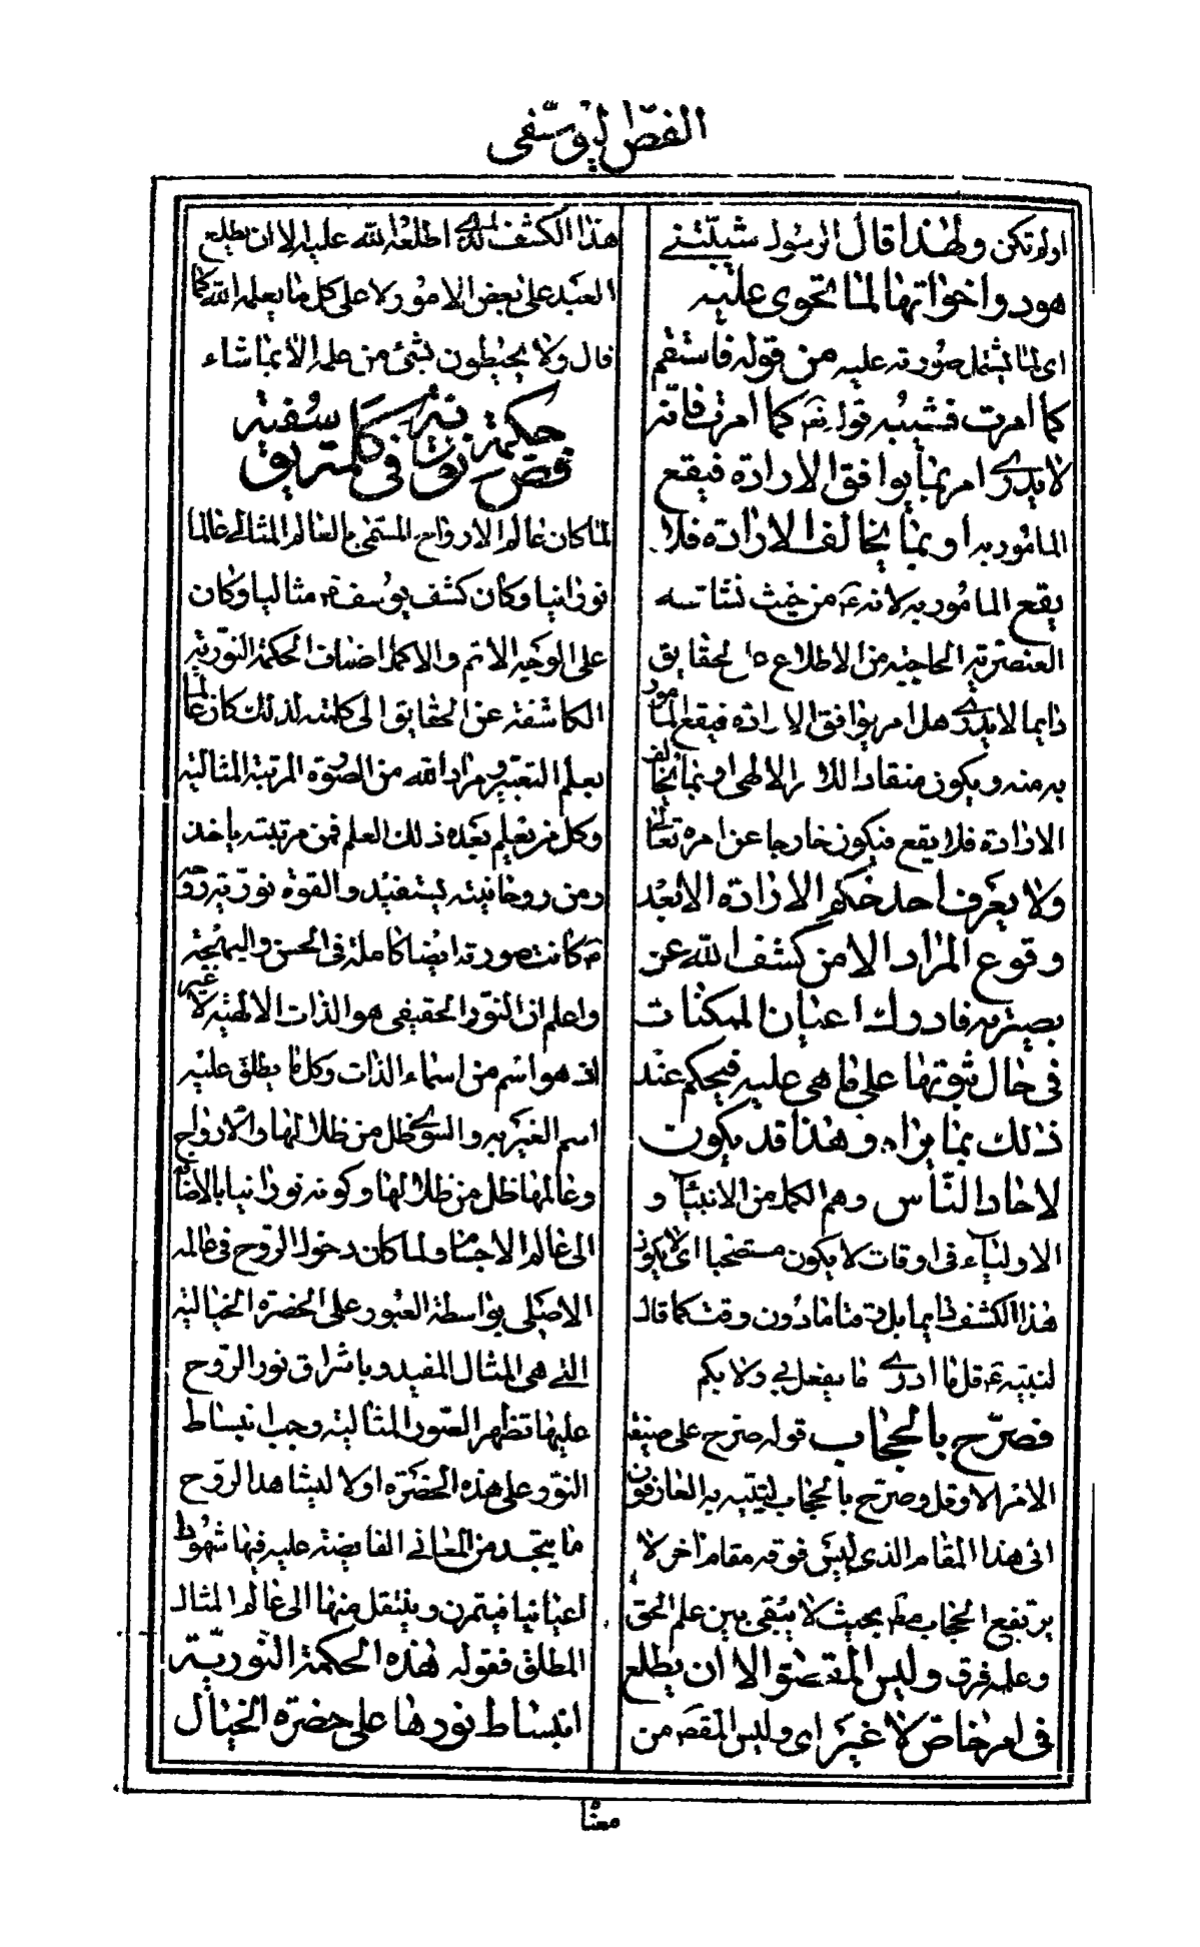 الفصّ اليوسفى
اولم تكن ولهذا قال الرسول شيّبتنى
هود واخواتها لما تحوى عليه
اى لما يشتمل صورته عليه من قوله فاستقم
كما امرت فشيبه قوله تم كما امرت فانه
لا يدرى امر بما يوافق الارادة فيقع
المامور به او بما يخالف الارادة فلا
يقع المامور به لانه عم من حيث نشاته
العنصرية الحاجبة من الاطلاع ه الحقايق
دايما لا يدرى هل امر يوافق الارادة فيقع المامور
به منه ويكون منقادا للامر الالهى او بما يخالف
الارادة فلا يقع فيكون خارجا عن امره تعالى
ولا يعرف احد حكم الارادة الا بعد
وقوع المراد الا من كشف الله عن
بصيرته فادرك اعيان الممكنات
فى حال ثبوتها على ما هى عليه فيحكم عند
ذلك بما يراه وهذا قد يكون
لاحاد الناس وهم الكمل من الانبياء و
الاولياء فى اوقات لا يكون مستصحبا اى لا يكون
هذا الكشف دايما بل وقتا ما دون وقت كما قال
لنبيه عم قل ما ادرى ما يفعل بى ولا بكم
فصرّح بالحجاب قوله صرح على صيغة
الامر اى وقل وصرح بالحجاب ليتنبه به العارفون
انّ هذا المقام الذى ليس فوقه مقام اخر لا
يرتفع الحجاب مطلقا بحيث لا يبقى بين علم الحق
وعلمه فرق وليس المقصود الا ان يطلع
فى امر خاص لا غير اى وليس المقصود من
هذا الكشف الذى اطلعه الله عليه الا ان يطلع
العبد على بعض الامور لا على كل ما يعلمه الله كما
قال ولا يحيطون بشئ من علمه الا بما شاء
فص حكمة نورية فى كلمة يوسفية
لما كان عالم الارواح المسمى بالعالم المثالى عالما
نورانيا وكان كشف يوسف عم مثاليا وكان
على الوجه الاتم والاكمل اضاف الحكمة النورية
الكاشفة عن الحقايق الى كلمته لذلك كان عالما
بعلم التعبير ومراد الله من الصورة المرئية المثالية
وكل من يعلم بعده ذلك العلم فمن مرتبته ياخذ
ومن روحانيته يستفيد ولقوة نورية روحه
عم كانت صورته ايضا كاملة فى الحسن والبهجة
واعلم ان النور الحقيقى هو الذات الالهية لا غير
اذ هو اسم من اسماء الذات وكل ما يطلق عليه
اسم الغيرية والسوى ظل من ظلالها والارواح
وعالمها ظل من ظلالها وكونه نورانيا بالاضافة
الى عالم الاجسام ولما كان دخول الروح فى عالمه
الاصلى بواسطة العبور على الحضرة الخيالية
التى هى المثال المقيد وباشراق نور الروح
عليها تظهر الصور المثالية وجب انبساط
النور على هذه الحضرة اولا ليشاهد الروح
ما يتجسد من المعانى الفايضة عليه فيها شهودا
اعيانيا فيتمرن وينتقل منها الى عالم المثال
المطلق فقوله هذه الحكمة النورية
انبساط نورها على حضرة الخيال
معنا